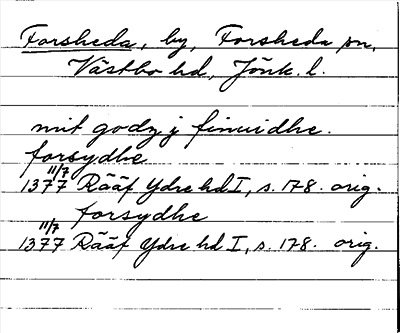 Forsheda, by, Forsheda sn,
Västbo hd, Jönk. l.
mit godz j finuidhe.
forsydhe
11/7
1377 Rääf Ydre hd I, s. 178. orig.
forsydhe
11/7
1377 Rääf Ydre hd I, s. 178. orig.